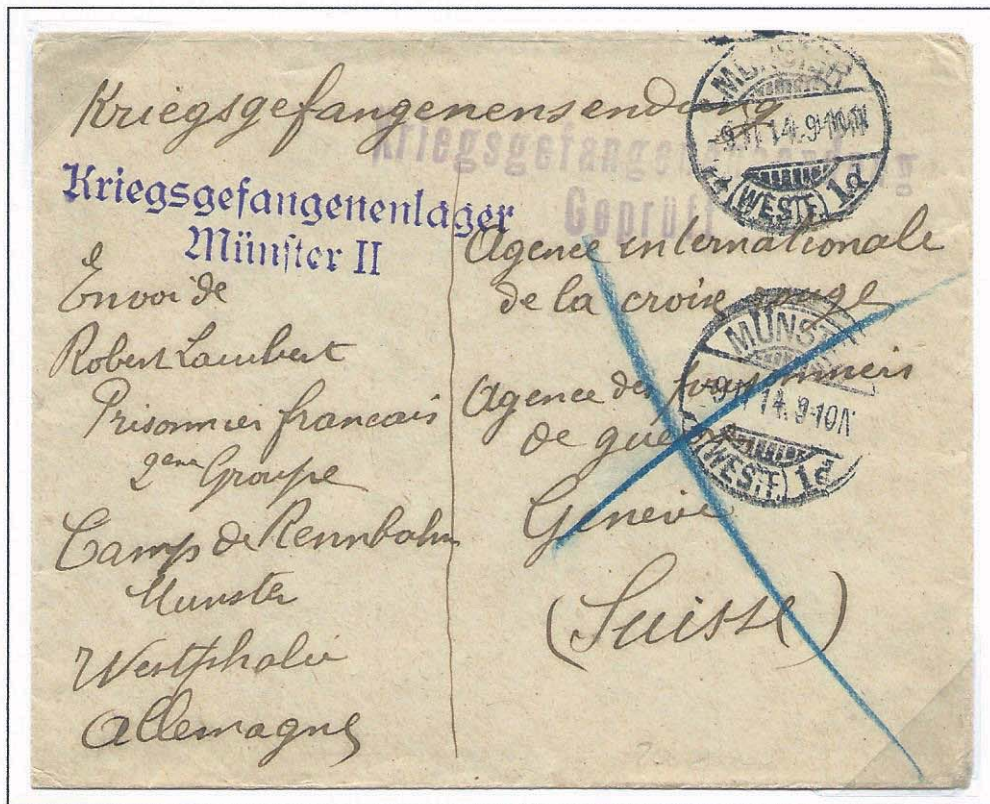 Kriegsgefangenensendung
Kriegsgefangenensendung
Geprüft
MÜNSTER
-9.11.14.9-10N
(WESTF.) 1d
Kriegsgefangenenlager
Münster II
Envoi de
Robert Lambert
Prisonnier francais
2eme Groupe
Camp de Rennbahn
Munster
Westphalie
Allemagne
Agence internationale
de la croix rouge
Agence des prisonniers
de guerre
Genève
(Suisse)
MÜNSTER
-9.11.14.9-10N
(WESTF.) 1d